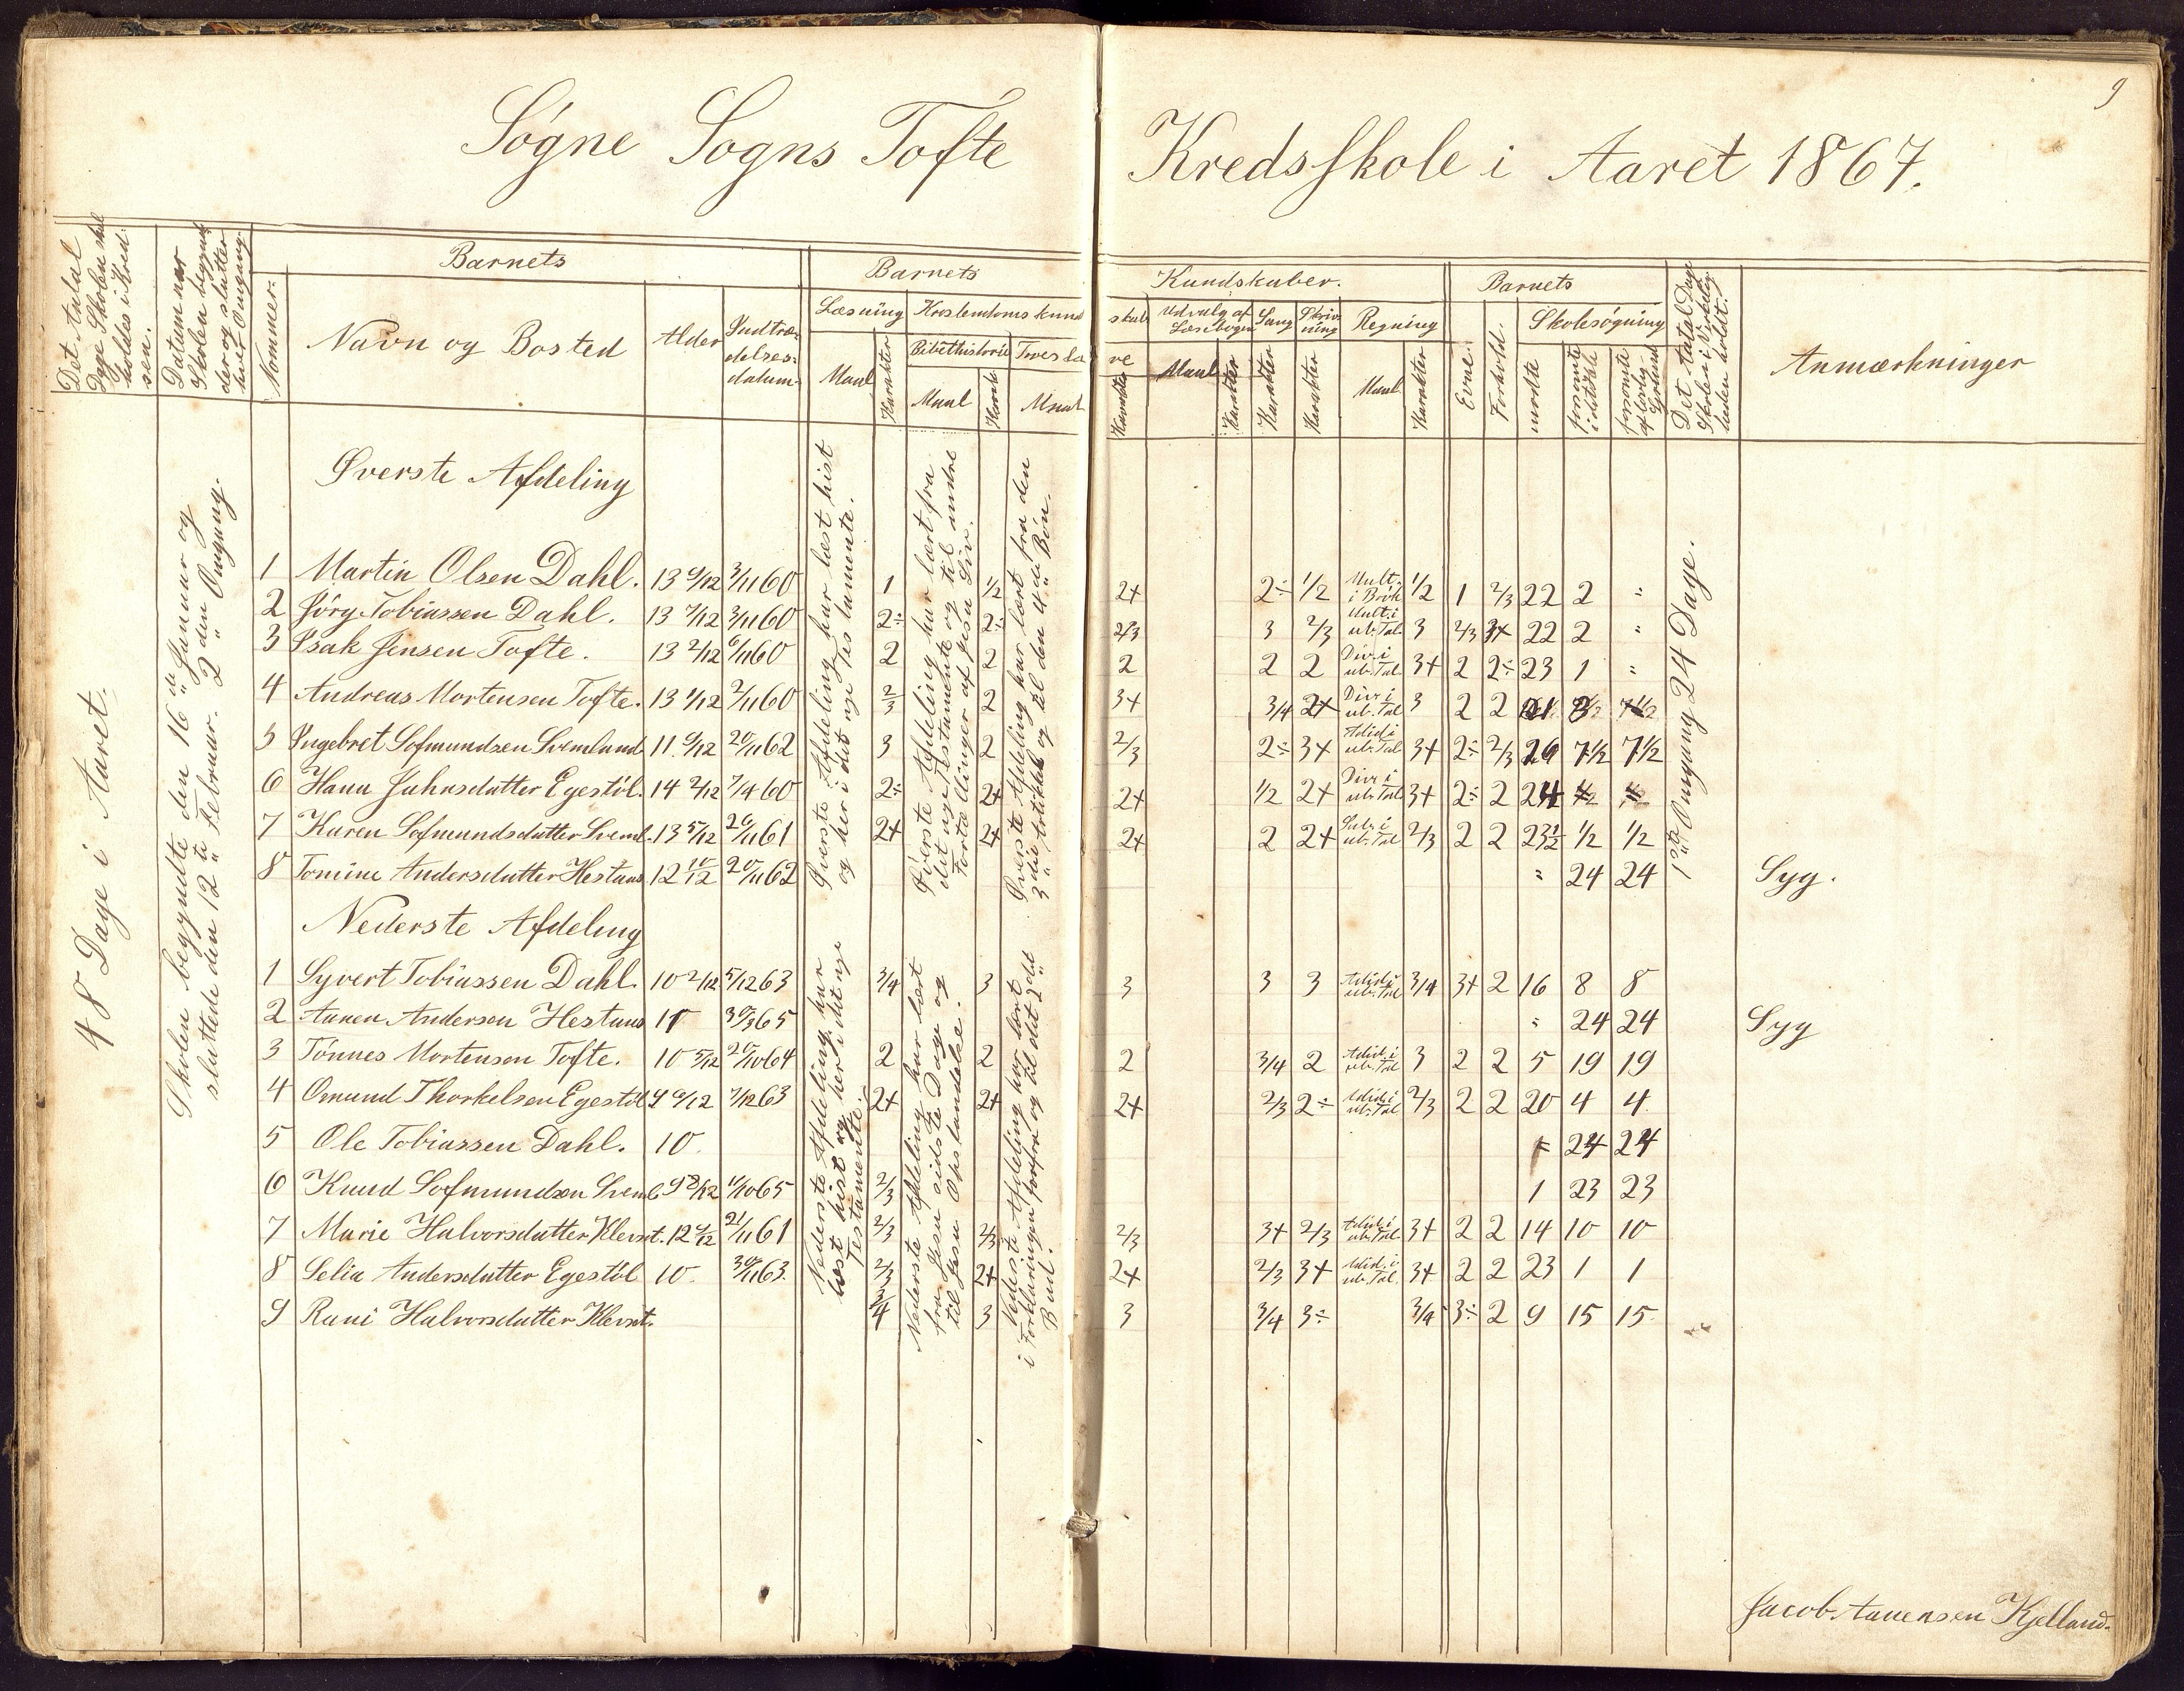 9
Søgne Sogns Tofte Kredsskole i Aaret 1867.
Det Antal Dage Skolen skal holdes i Kredsen.
Datum naar Skolen begynder og slutter hver Omgang.
Nommer.
Barnets
Navn og Bosted
Alder
Indtrædelsesdatum
Barnets Kundskaber.
Læsning
Maal
Karakter
Kristendomskundskab
Bibelhistorie
Maal
Karak
Troeslære
Maal
Karakter
Udvalg af Læsebogen
Maal
Karakter
Sang
Karakter
Skrivning
Karakter
Regning
Maal
Karakter
Barnets
Evne.
Forhold.
Skolesøgning
mødte
forsømte i det hele
forsømte af lovlig Grund
Det Antal Dage Skolen i Virkeligheden holdt.
Anmærkninger
48 Dage i Aaret.
Skolen begyndte den 16de Januar og
sluttede den 12te Februar. 2den Omgang.
Øverste Afdeling
Øverste Afdeling har læst hist
og her i det nye Testamente.
Øverste Afdeling har lært fra
det nye Testamente og til andre
Fortællinger af Jesu Liv.
Øverste Afdeling har lært fra den
3die Artikkel og til den 4de Bøn.
1ste Omgang 24 Dage.
1 Martin Olsen Dahl. 13 9/12 3/11 60 1 1/2 2+ 2÷ 1/2 Mult. i Brøk 1/2 1 2/3 22 2 "
2 Jörg Tobiassen Dahl. 13 7/12 3/11 60 2÷ 2÷ 2/3 3 2/3 Mult. i ub. Tal 3 2/3 3+ 22 2 "
3 Isak Jensen Tofte. 13 2/12 6/11 60 2 2 2 2 2 Div. i ub. Tal 3+ 2 2÷ 23 1 "
4 Andreas Mortensen Tofte. 13 1/12 2/11 60 2/3 2 3+ 3/4 2+ Div. i ub. Tal 3 2 2
5 Ingebret Sofmundsen Svemlund 11 9/12 20/11 62 3 2 2/3 2÷ 3+ Adid. i ub. Tal 3+ 2÷ 2/3 16 7 1/2 7 1/2
6 Hana Jahnsdatter Egestöl. 14 2/12 7/4 60 2÷ 2+ 2+ 1/2 2+ Div. i ub. Tal 3+ 2÷ 2 24
7 Karen Sofmundsdatter Sveml. 13 5/12 20/11 61 2+ 2+ 2+ 2 2+ Sub. i ub. Tal 2/3 2 2 23 1/2 1/2 1/2
8 Tomine Andersdatter Hestaas 12 10/12 20/11 62 " 24 24 Syg.
Nederste Afdeling
Nederste Afdeling har
læst hist og her i det nye
Testamente.
Nederste Afdeling har lært
fra Jesu sidste Dage og
til Jesu Opstandelse.
Nederste Afdeling har lært
i Forklaringen forfra og til det 2det
Bud.
1 Syvert Tobiassen Dahl. 10 2/12 5/12 63 3/4 3 3 3 3 Adid. i ub. Tal 3/4 3+ 2 16 8 8
2 Aanen Andersen Hestaas 11 30/3 65 " 24 24 Syg
3 Tönnes Mortensen Tofte. 10 5/12 20/10 64 2 2 2 3/4 2 Adid. i ub. Tal 3 2 2 5 19 19
4 Omund Thorkelsen Egestöl 9 9/12 7/12 63 2+ 2+ 2+ 2/3 2÷ Adid. i ub. Tal 2/3 2 2 20 4 4
5 Ole Tobiassen Dahl. 10. 24 24
6 Knud Sofmundsen Sveml. 9 8/12 1/10 65 2/3 1 23 23
7 Marie Halvorsdatter Klevst. 12 21/11 61 2/3 2/3 2/3 3+ 2/3 Adid. i ub. Tal 3+ 2 2 14 10 10
8 Selia Andersdatter Egestöl 10. 30/11 63. 2/3 2+ 2+ 2/3 3+ Adid. i ub. Tal 3+ 2 2 23 1 1
9 Rani Halvorsdatter Klevst. 3/4 3 3 3/4 3÷ 3/4 3÷ 2 9 15 15
Jacob Aanensen Kjelland.